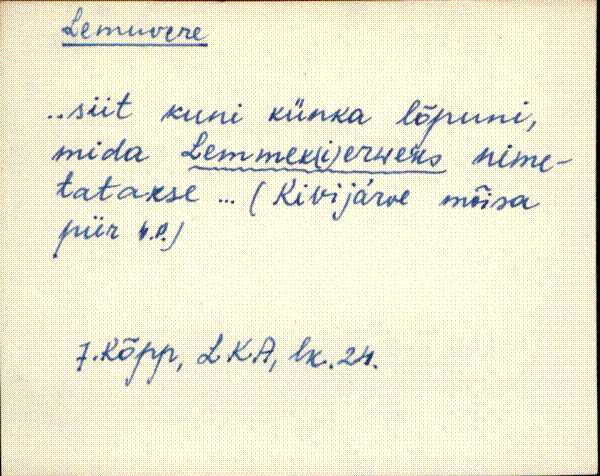 Lemuvere
..siit kuni künka lõpuni,
mida Lemmek(i)erweks nime-
tatakse ... (Kivijärve mõisa
piir
J. Kõpp, LKA, lk. 24.